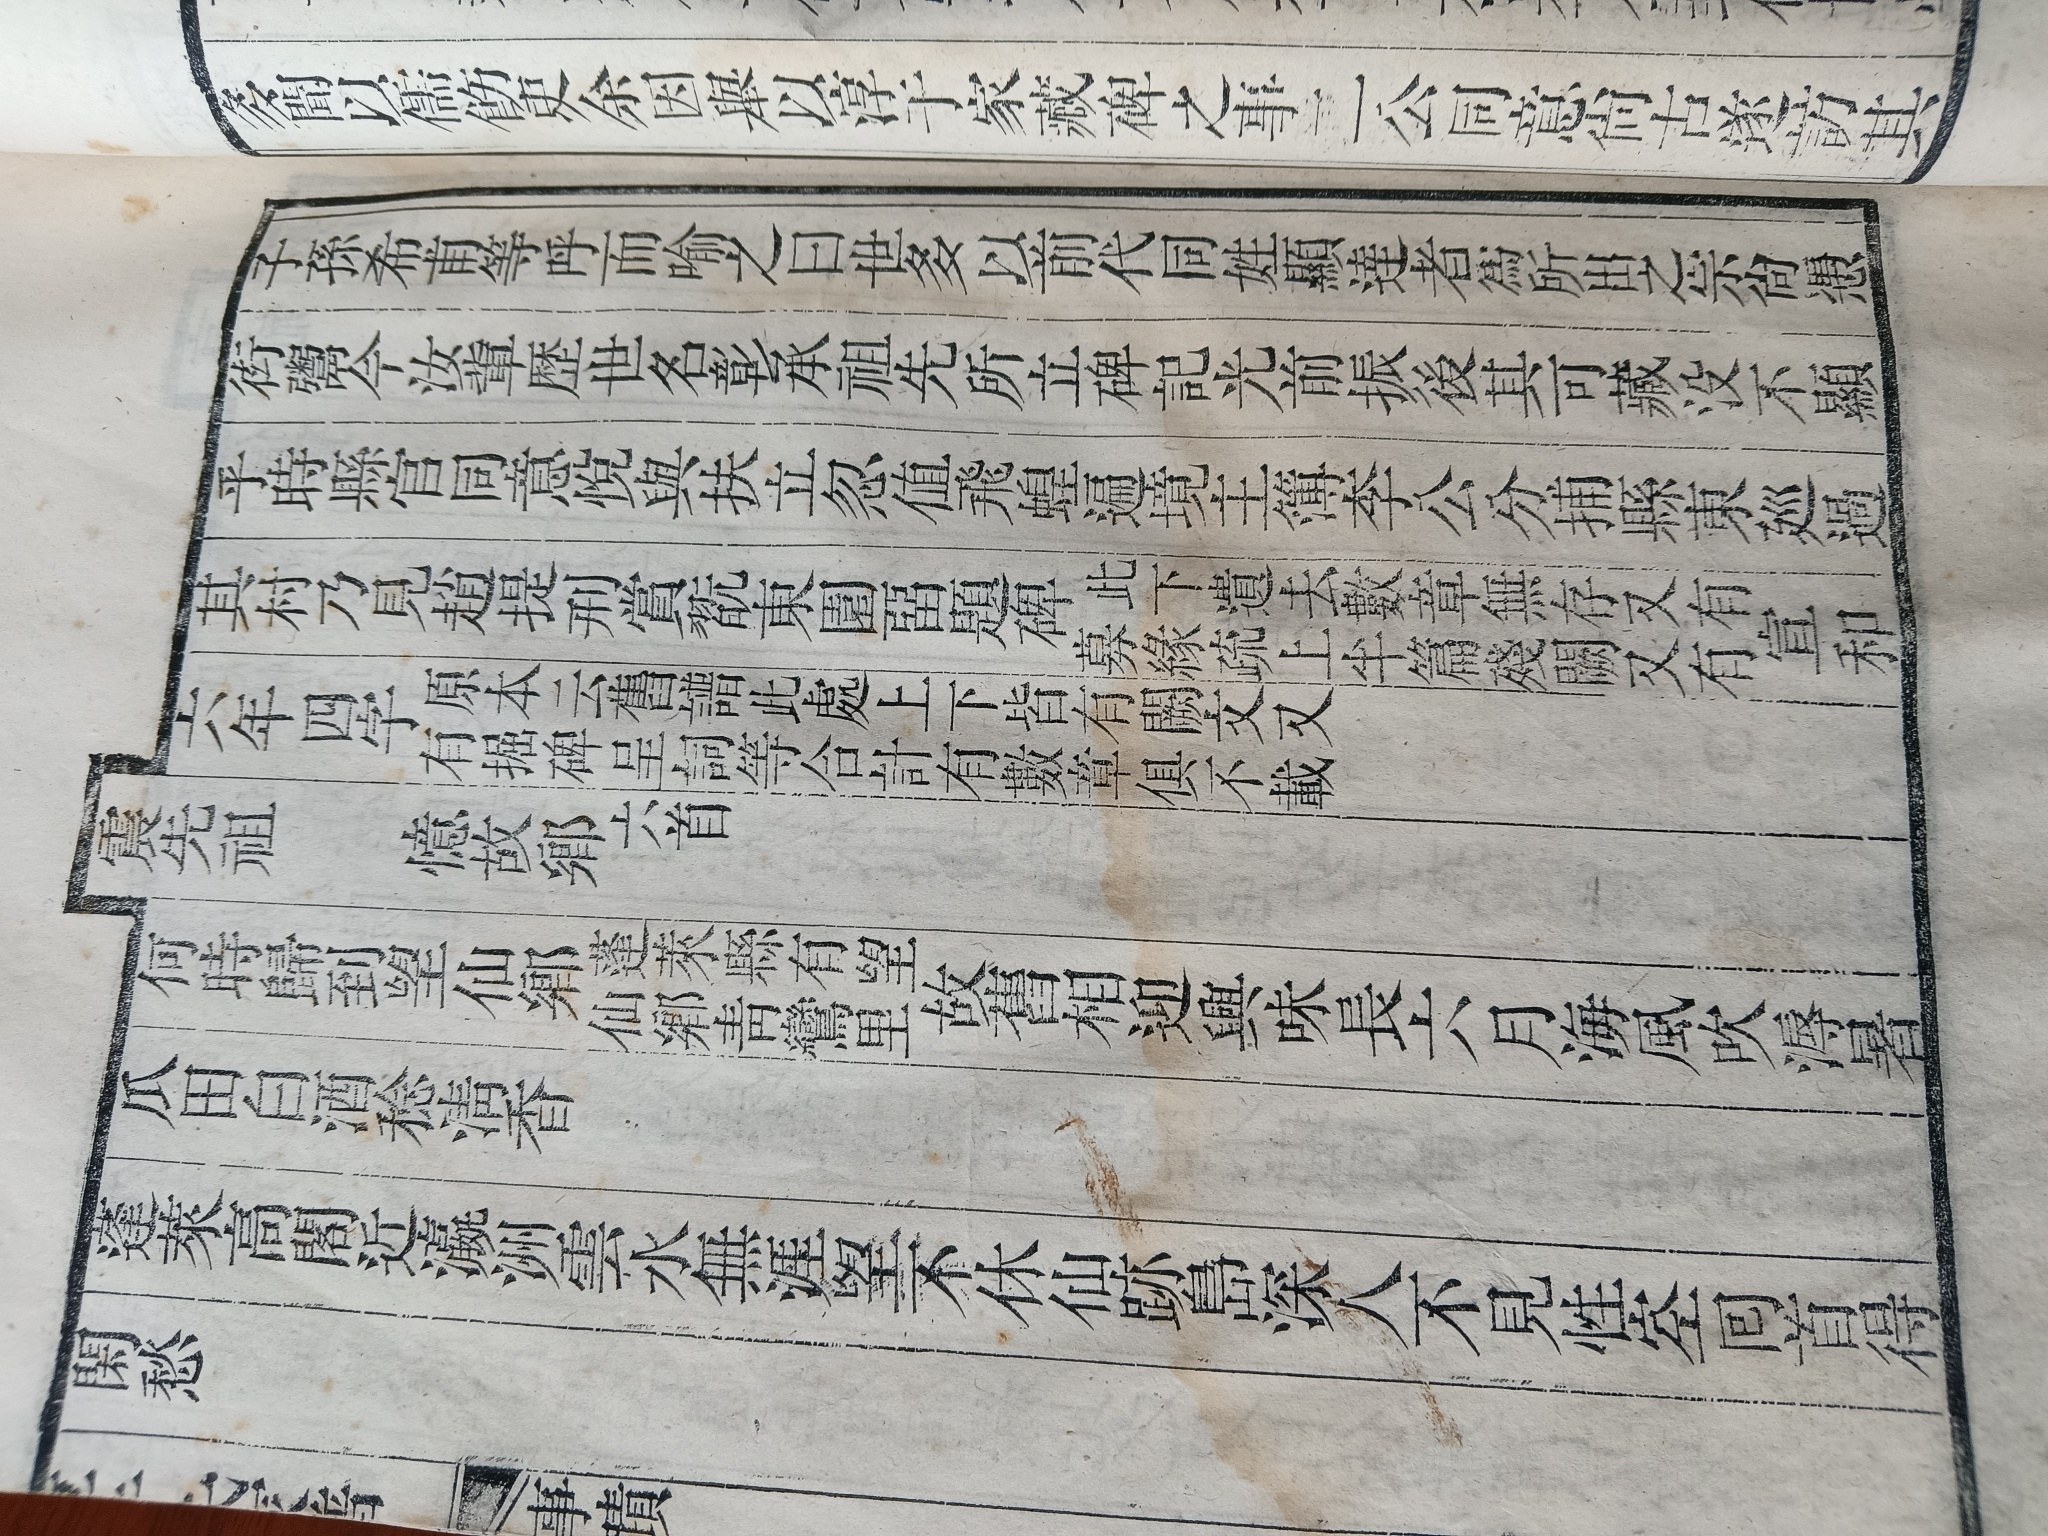 多聞以儒飭吏余因與以淳于家藏碑之事二公同意尚古遂訪其
子孫希甫等呼而喻之曰世多以前代同姓顯達者為所出之宗尚憑
街鬻今汝輩歷世名彰承祖先所立碑記光前振後其可藏没不顯
乎時縣官同意悅與扶立忽值飛蝗逼境主簿李公分捕縣東廵過
其村乃見趙提刑賞翫東園留題碑
此下遺去數章無存又有宣和
募緣疏上半篇殘闕又有
六年四字
原本云舊譜此處上下皆有闕文又
有掘碑呈詞等合計有數章俱不載
襃先祖 憶故鄉六首
何時歸到望仙鄉
蓬萊縣有望
仙鄉青鸞里
故舊相迎興味長六月海風吹溽暑
瓜田白酒稔清香
蓬萊高閣近瀛洲雲水無涯望不休仙跡島深人不見怪空回首得
閑愁
事蹟